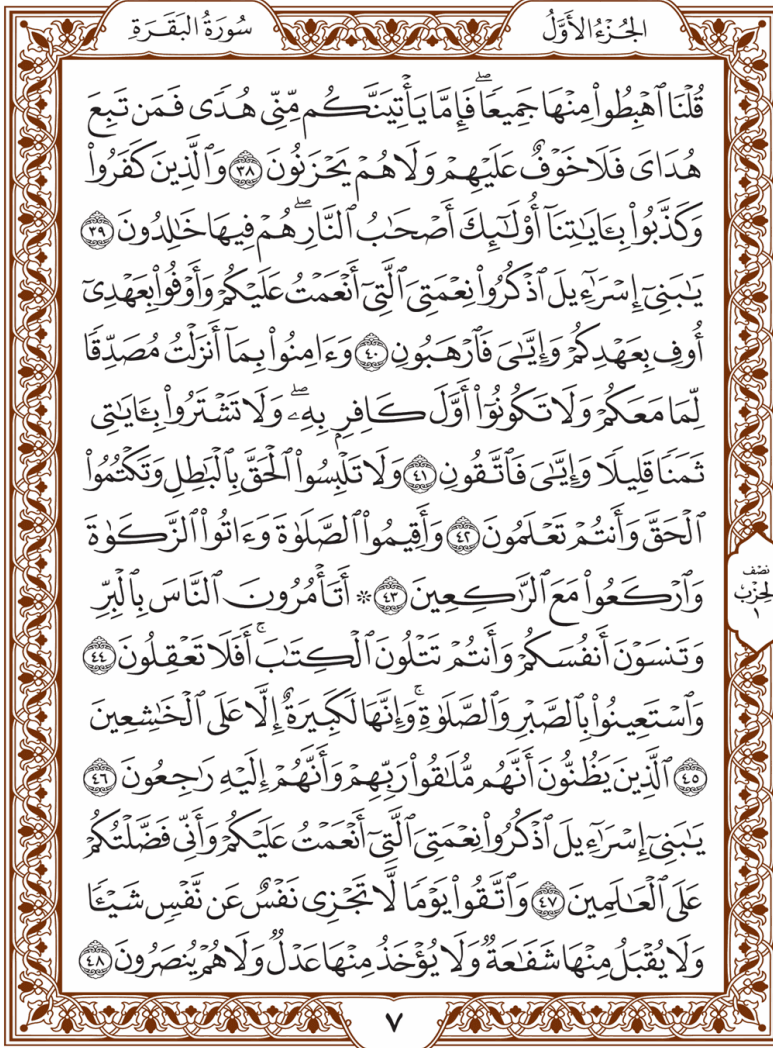 الجُزْءُ الأَوَّلُ
سُورَةُ البَقَرَةِ
قُلۡنَا ٱهۡبِطُواْ مِنۡهَا جَمِيعٗاۖ فَإِمَّا يَأۡتِيَنَّكُم مِّنِّي هُدٗى فَمَن تَبِعَ
هُدَايَ فَلَا خَوۡفٌ عَلَيۡهِمۡ وَلَا هُمۡ يَحۡزَنُونَ ٣٨ وَٱلَّذِينَ كَفَرُواْ
وَكَذَّبُواْ بِـَٔايَٰتِنَآ أُوْلَٰٓئِكَ أَصۡحَٰبُ ٱلنَّارِۖ هُمۡ فِيهَا خَٰلِدُونَ ٣٩
يَٰبَنِيٓ إِسۡرَٰٓءِيلَ ٱذۡكُرُواْ نِعۡمَتِيَ ٱلَّتِيٓ أَنۡعَمۡتُ عَلَيۡكُمۡ وَأَوۡفُواْ بِعَهۡدِيٓ
أُوفِ بِعَهۡدِكُمۡ وَإِيَّٰيَ فَٱرۡهَبُونِ ٤٠ وَءَامِنُواْ بِمَآ أَنزَلۡتُ مُصَدِّقٗا
لِّمَا مَعَكُمۡ وَلَا تَكُونُوٓاْ أَوَّلَ كَافِرِۭ بِهِۦۖ وَلَا تَشۡتَرُواْ بِـَٔايَٰتِي
ثَمَنٗا قَلِيلٗا وَإِيَّٰيَ فَٱتَّقُونِ ٤١ وَلَا تَلۡبِسُواْ ٱلۡحَقَّ بِٱلۡبَٰطِلِ وَتَكۡتُمُواْ
ٱلۡحَقَّ وَأَنتُمۡ تَعۡلَمُونَ ٤٢ وَأَقِيمُواْ ٱلصَّلَوٰةَ وَءَاتُواْ ٱلزَّكَوٰةَ
وَٱرۡكَعُواْ مَعَ ٱلرَّٰكِعِينَ ٤٣ ۞ أَتَأۡمُرُونَ ٱلنَّاسَ بِٱلۡبِرِّ
وَتَنسَوۡنَ أَنفُسَكُمۡ وَأَنتُمۡ تَتۡلُونَ ٱلۡكِتَٰبَۚ أَفَلَا تَعۡقِلُونَ ٤٤
وَٱسۡتَعِينُواْ بِٱلصَّبۡرِ وَٱلصَّلَوٰةِۚ وَإِنَّهَا لَكَبِيرَةٌ إِلَّا عَلَى ٱلۡخَٰشِعِينَ
٤٥ ٱلَّذِينَ يَظُنُّونَ أَنَّهُم مُّلَٰقُواْ رَبِّهِمۡ وَأَنَّهُمۡ إِلَيۡهِ رَٰجِعُونَ ٤٦
يَٰبَنِيٓ إِسۡرَٰٓءِيلَ ٱذۡكُرُواْ نِعۡمَتِيَ ٱلَّتِيٓ أَنۡعَمۡتُ عَلَيۡكُمۡ وَأَنِّي فَضَّلۡتُكُمۡ
عَلَى ٱلۡعَٰلَمِينَ ٤٧ وَٱتَّقُواْ يَوۡمٗا لَّا تَجۡزِي نَفۡسٌ عَن نَّفۡسٖ شَيۡـٔٗا
وَلَا يُقۡبَلُ مِنۡهَا شَفَٰعَةٞ وَلَا يُؤۡخَذُ مِنۡهَا عَدۡلٞ وَلَا هُمۡ يُنصَرُونَ ٤٨
نِصۡف
الحِزۡبِ
١
٧